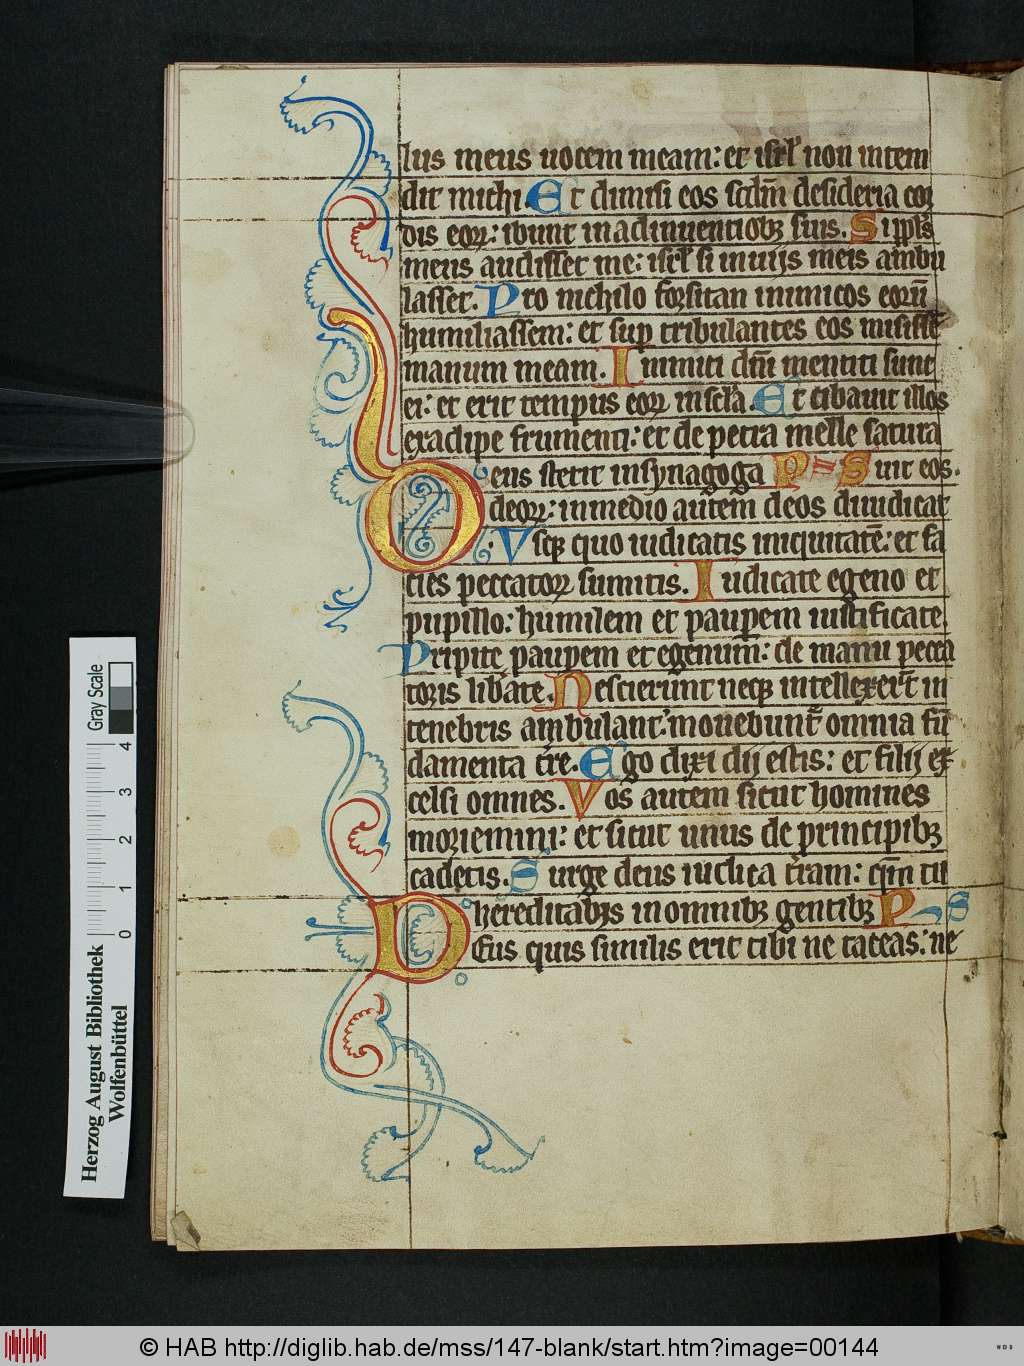 lus meus uocem meam: et isrl̓ non inten
dit michi. Et dimisi eos scdm̄ desideria cor
dis eorꝝ: ibunt in adinuentiobꝫ suis. Si ppl̓s
meus audisset me: isrl̓ si in uijs meis ambu
lasset. Pro nichilo forsitan inimicos eorū
humiliassem: et sup̱ tribulantes eos misissē
manum meam. Inimici dn̄i mentiti sunt
ei: et erit tempus eorꝝ in scl̓a. Et cibauit illos
ex adipe frumenti: et de petra melle satura
Deus stetit in synagoga P=S uit eos.
deorꝝ: in medio autem deos diiudicat
. Vsqꝫ quo iudicatis iniquitatē: et fa
cies peccatorꝝ sumitis. Iudicate egeno et
pupillo: humilem et paup̱em iustificate.
Eripite paup̱em et egenum̄: de manu pecca
toris liberate. Nescierunt neqꝫ intellexer̄t in
tenebris ambulant: mouebunt̄ omnia fū
damenta tr̄e. Ego dixi dij estis: et filij ex
celsi omnes. Vos autem sicut homines
moriemini: et sicut unus de principibꝫ
cadetis. Surge deus iudica tr̄am: qm̄ tu
hereditabis in omnibꝫ gentibꝫ P S
DEus quis similis erit tibi ne taceas: ne
Gray Scale
4
3
2
1
0
Herzog August Bibliothek
Wolfenbüttel
© HAB http://diglib.hab.de/mss/147-blank/start.htm?image=00144